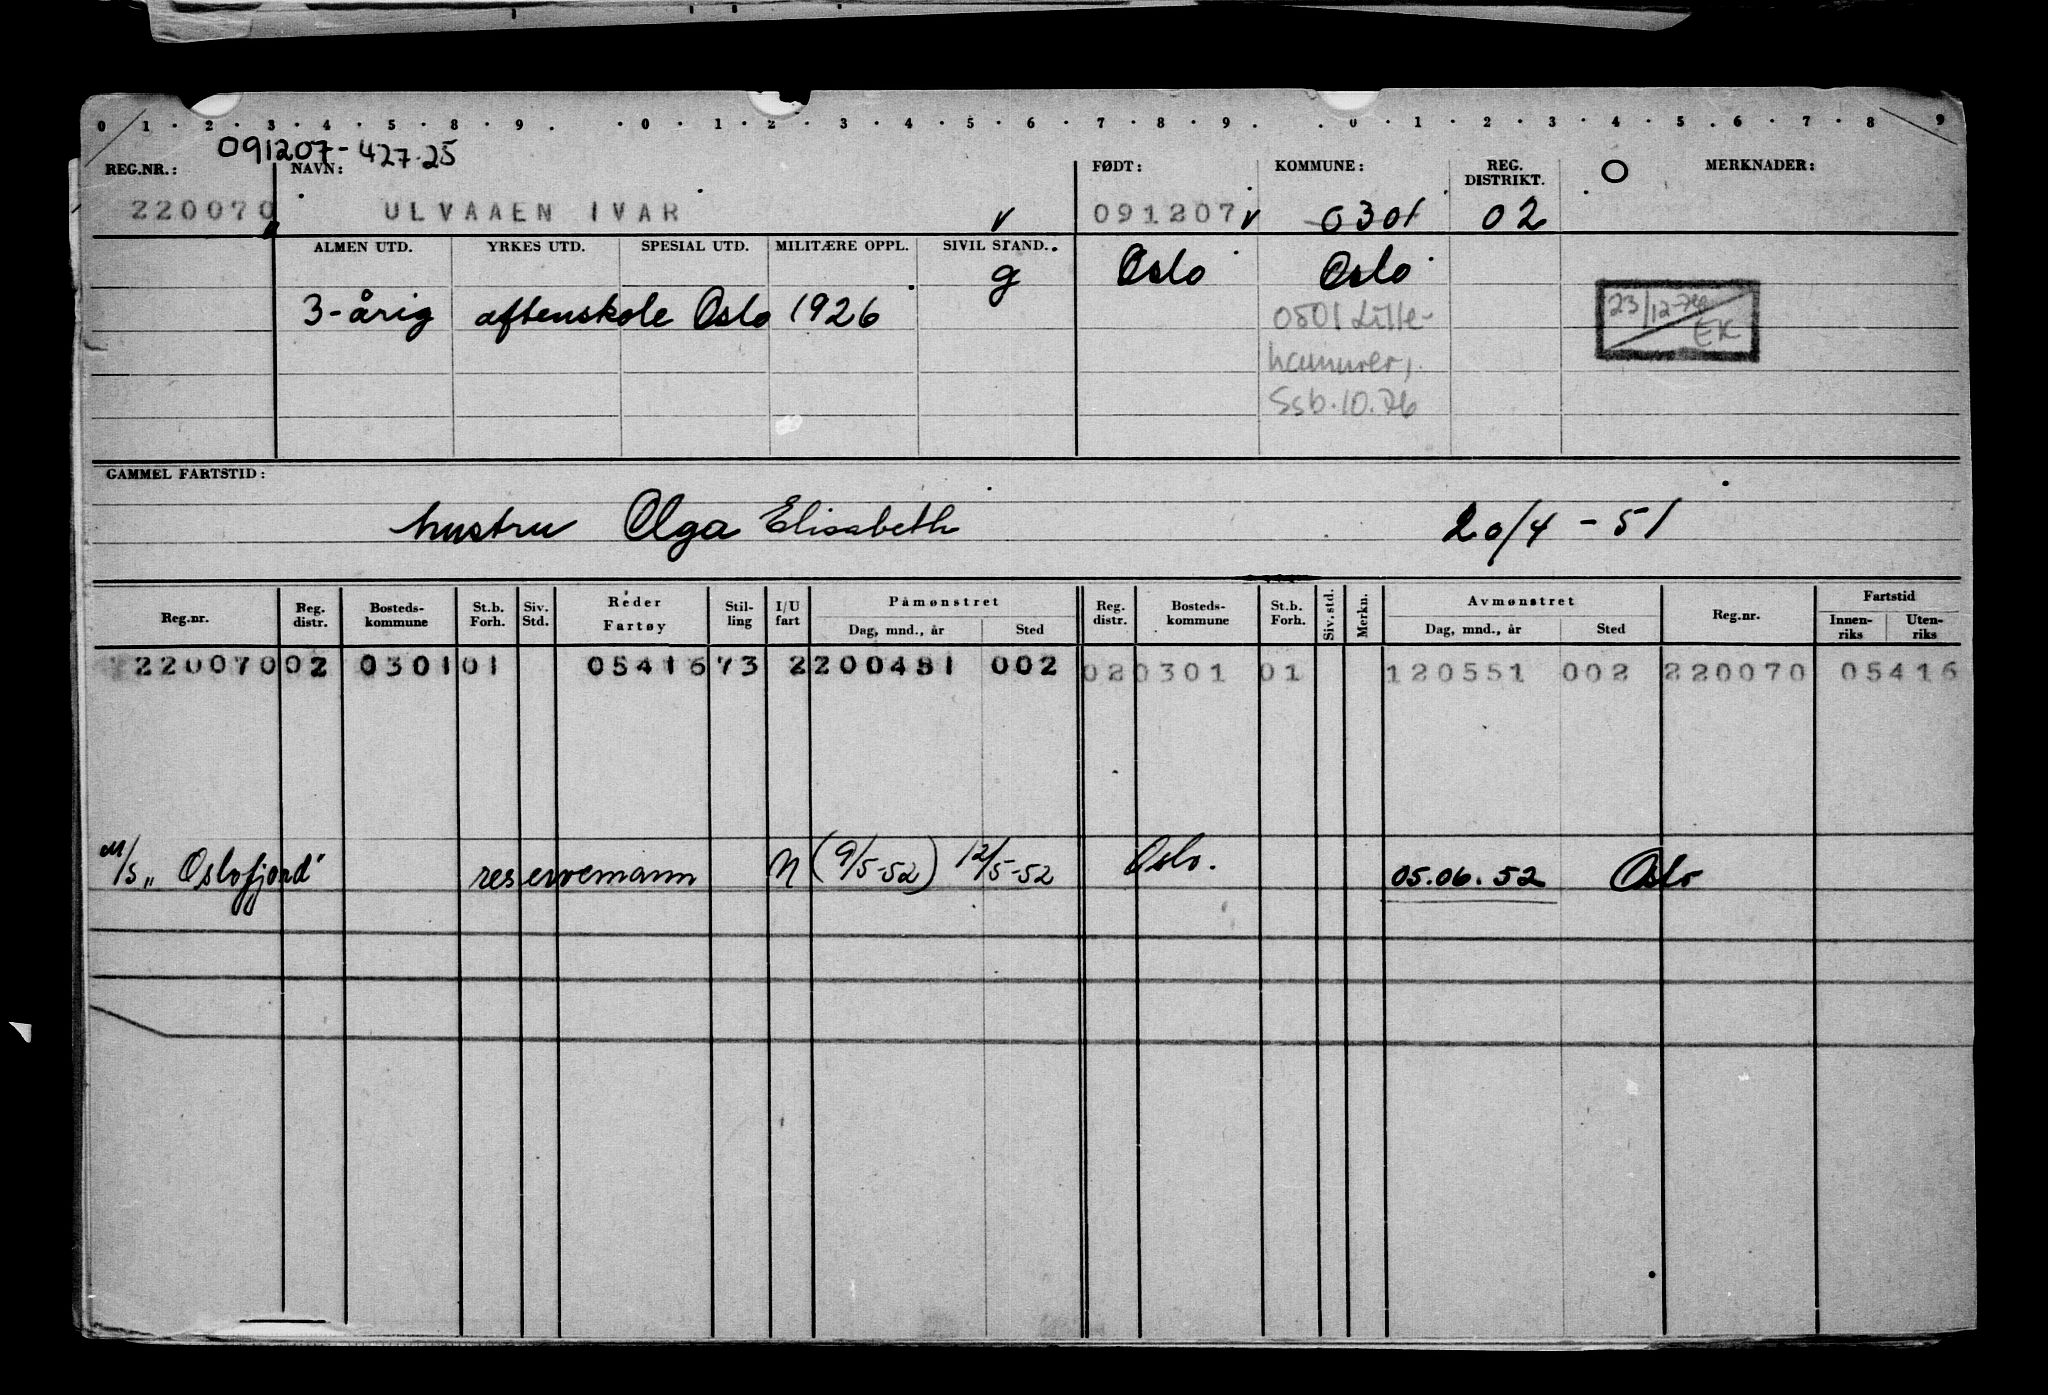 0 1 . 2 . 3 . 4 . 5 . 8 . 9 . . 0 . 1 . 2 . 3 . 4 . 5 . 6 . 7 . 8 . 9 . . 0 . 1 . 2 . 3 . 4 . 5 . 6 . 7 . 8 9
091207-427.25
REG.NR.: NAVN: FØDT: KOMMUNE: REG. DISTRIKT. O MERKNADER:
220070 ULVAAEN IVAR v 091207 v 0301 02
ALMEN UTD. YRKES UTD. SPESIAL UTD. MILITÆRE OPPL. SIVIL STAND.
g Oslo Oslo
3-årig aftenskole Oslo 1926 0501 Lille- 23/12-76
EK
hammer,
Ssb.10.76
GAMMEL FARTSTID:
hustru Olga Elisabeth 20/4 - 51
Reg.nr. Reg. distr. Bosteds- kommune St.b. Forh. Siv. Std. Reder Fartøy Stil- ling I/U fart Påmønstret Dag, mnd., år Sted Reg. distr. Bosteds- kommune St.b. Forh. Siv. std. Merkn. Avmønstret Dag, mnd., år Sted Reg.nr. Fartstid Innen- riks Uten- riks
220070 02 0301 01 05416 73 2 200451 002 02 0301 01 120551 002 220070 05416
M/S „Oslofjord" reservemann N (9/5-52) 12/5-52 Oslo. 05.06.52 Oslo